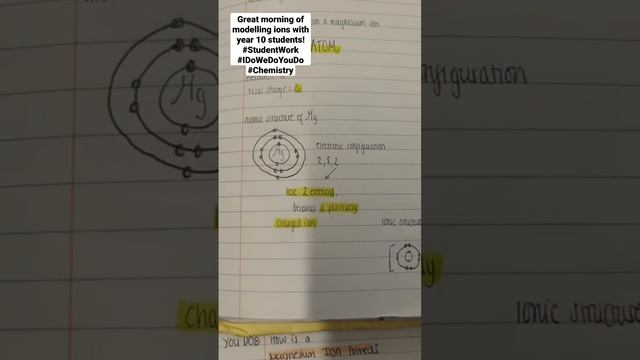 Great morning of
modelling ions with
year 10 students!
#StudentWork
#IDoWeDoYouDo
#Chemistry
on a magnesium ion
ATOM
Total charge = 0
atomic structure of Mg
Mg
electronic configuration
2, 8, 2
lose 2 electrons.
becomes a positively
charged ion
ionic struc
YOU DO8 How is a
Magnesium Ion formed?
Mg
configuration
cha
ly
ionic structure